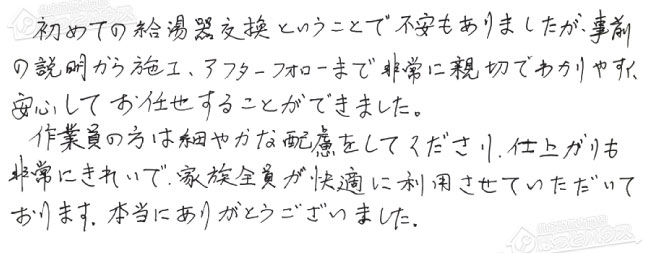 初めての給湯器交換ということで不安もありましたが、事前
の説明から施工、アフターフォローまで非常に親切でわかりやすく、
安心してお任せすることができました。
作業員の方は細やかな配慮をしてくださり、仕上がりも
非常にきれいで、家族全員が快適に利用させていただいて
おります。本当にありがとうございました。